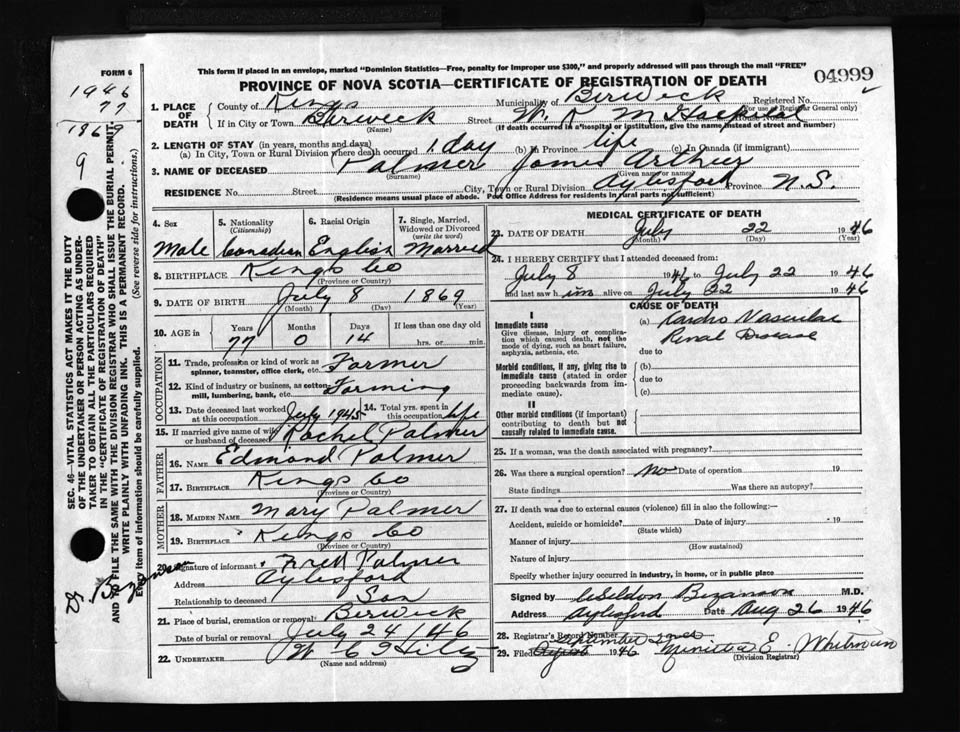 This form if placed in an envelope, marked “Dominion Statistics—Free, penalty for improper use $300,” and properly addressed will pass through the mail “FREE”
FORM 6
PROVINCE OF NOVA SCOTIA—CERTIFICATE OF REGISTRATION OF DEATH
04999
1946
77
1869
9
1. PLACE OF DEATH County of Kings Municipality of Berwick Registered No.
(For use of Registrar General only)
If in City or Town Berwick Street W. K. M Hospital House No.
(Name) (If death occurred in a hospital or institution, give the name instead of street and number)
2. LENGTH OF STAY (in years, months and days)
(a) In City, Town or Rural Division where death occurred 1 day (b) In Province life (c) In Canada (if immigrant)
3. NAME OF DECEASED Palmer James Arthur
(Surname) (Given name or names)
RESIDENCE No. Street City, Town or Rural Division Aylesford Province N.S.
(Residence means usual place of abode. Post Office Address for residents in rural parts not sufficient)
4. Sex Male
5. Nationality (Citizenship) Canadian
6. Racial Origin English
7. Single, Married, Widowed or Divorced (write the word) Married
8. BIRTHPLACE Kings Co
(Province or Country)
9. DATE OF BIRTH July 8 1869
(Month) (Day) (Year)
10. AGE in Years Months Days If less than one day old
77 0 14 hrs. or min.
OCCUPATION
11. Trade, profession or kind of work as spinner, teamster, office clerk, etc. Farmer
12. Kind of industry or business, as cotton mill, lumbering, bank, etc. Farming
13. Date deceased last worked at this occupation July 1945 14. Total yrs. spent in this occupation life
15. If married give name of wife or husband of deceased Rachel Palmer
FATHER
16. NAME Edmond Palmer
17. BIRTHPLACE Kings Co
(Province or Country)
MOTHER
18. MAIDEN NAME Mary Palmer
19. BIRTHPLACE Kings Co
(Province or Country)
20. Signature of informant Fred Palmer
Address Aylesford
Relationship to deceased Son
21. Place of burial, cremation or removal Berwick
Date of burial or removal July 24/46
22. UNDERTAKER W C Hiltz
(Name and address)
MEDICAL CERTIFICATE OF DEATH
23. DATE OF DEATH July 22 1946
(Month) (Day) (Year)
24. I HEREBY CERTIFY that I attended deceased from:
July 8 1946 to July 22 1946
and last saw him alive on July 22 1946
CAUSE OF DEATH
I
Immediate cause
Give disease, injury or complication which caused death, not the mode of dying, such as heart failure, asphyxia, asthenia, etc.
(a) Kardio Vascular
Renal Disease
due to
Morbid conditions, if any, giving rise to immediate cause (stated in order proceeding backwards from immediate cause).
(b)
due to
(c)
II
Other morbid conditions (if important) contributing to death but not causally related to immediate cause.
25. If a woman, was the death associated with pregnancy?
26. Was there a surgical operation? no Date of operation 19
State findings Was there an autopsy?
27. If death was due to external causes (violence) fill in also the following:—
Accident, suicide or homicide? Date of injury 19
(State which)
Manner of injury
(How sustained)
Nature of injury
Specify whether injury occurred in industry, in home, or in public place
Signed by Weldon Bezanson M.D.
Address Aylesford Date Aug 26 1946
28. Registrar's Record Number
29. Filed August September 2nd 1946 E. Whitman
(Division Registrar)
SEC. 46—VITAL STATISTICS ACT MAKES IT THE DUTY
OF THE UNDERTAKER OR PERSON ACTING AS UNDERTAKER TO OBTAIN ALL THE PARTICULARS REQUIRED
IN THE “CERTIFICATE OF REGISTRATION OF DEATH”
AND TO FILE THE SAME WITH THE DIVISION REGISTRAR WHO SHALL ISSUE THE BURIAL PERMIT.
WRITE PLAINLY WITH UNFADING INK. THIS IS A PERMANENT RECORD.
Every item of information should be carefully supplied. (See reverse side for instructions.)
Dr Bezanson